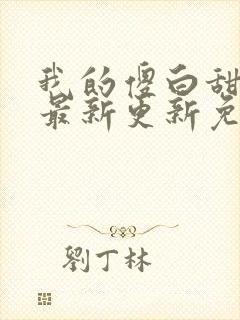 我的傻白甜
最新更新免
劉丁林